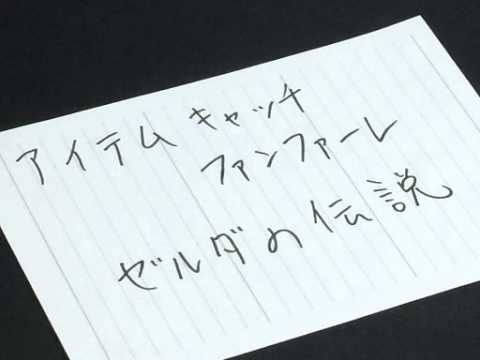 アイテムキャッチ
ファンファーレ
ゼルダの伝説